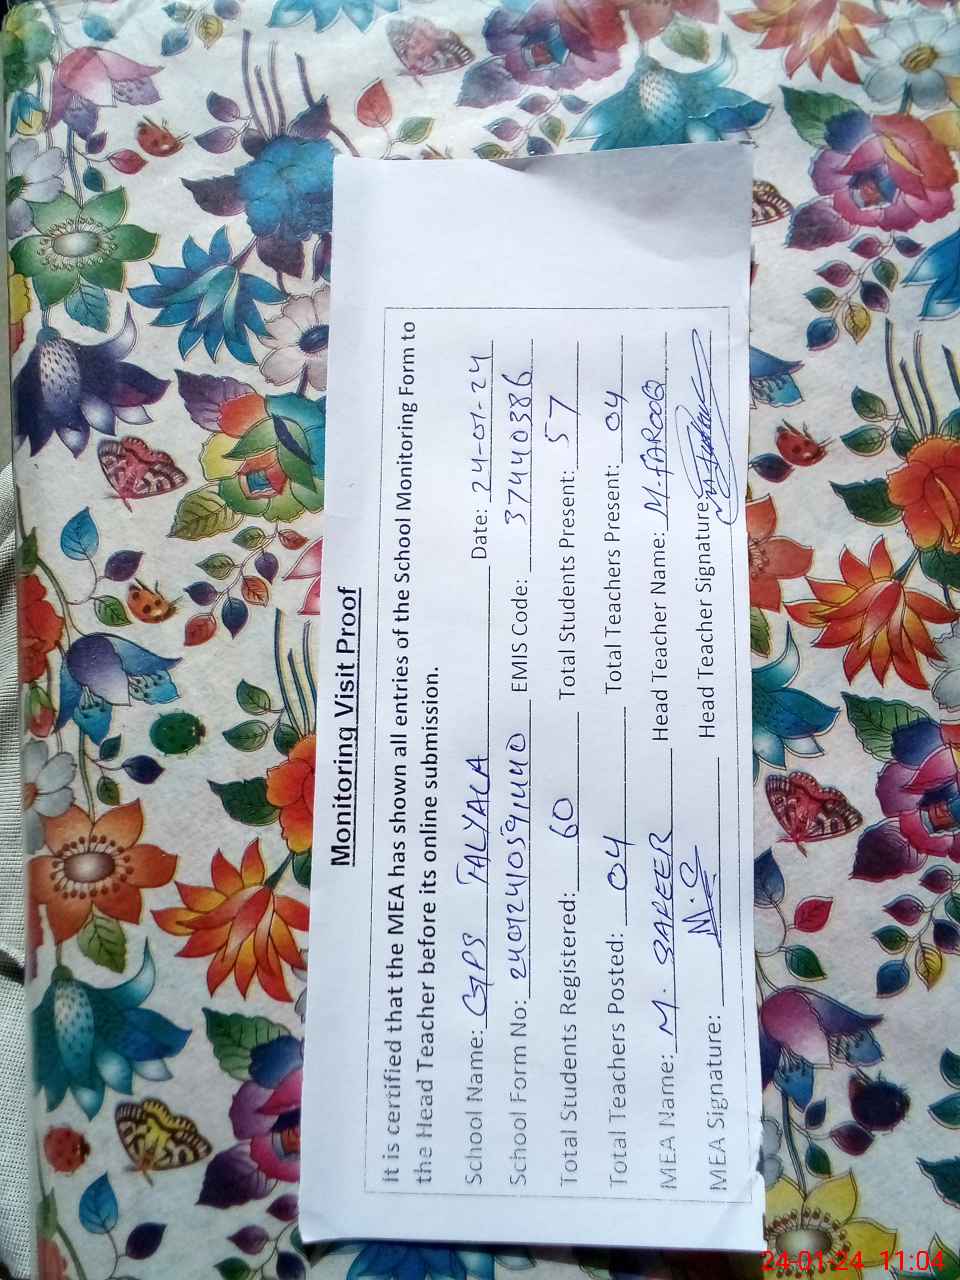 Monitoring Visit Proof
It is certified that the MEA has shown all entries of the School Monitoring Form to
the Head Teacher before its online submission.
School Name: GPS TALYALA Date: 24-01-24
School Form No: EMIS Code: 37440386
Total Students Registered: 60 Total Students Present: 57
Total Teachers Posted: 04 Total Teachers Present: 04
MEA Name: M. SAFEER Head Teacher Name: M. FAROOQ
MEA Signature: Head Teacher Signature:
24-01-24 11:04